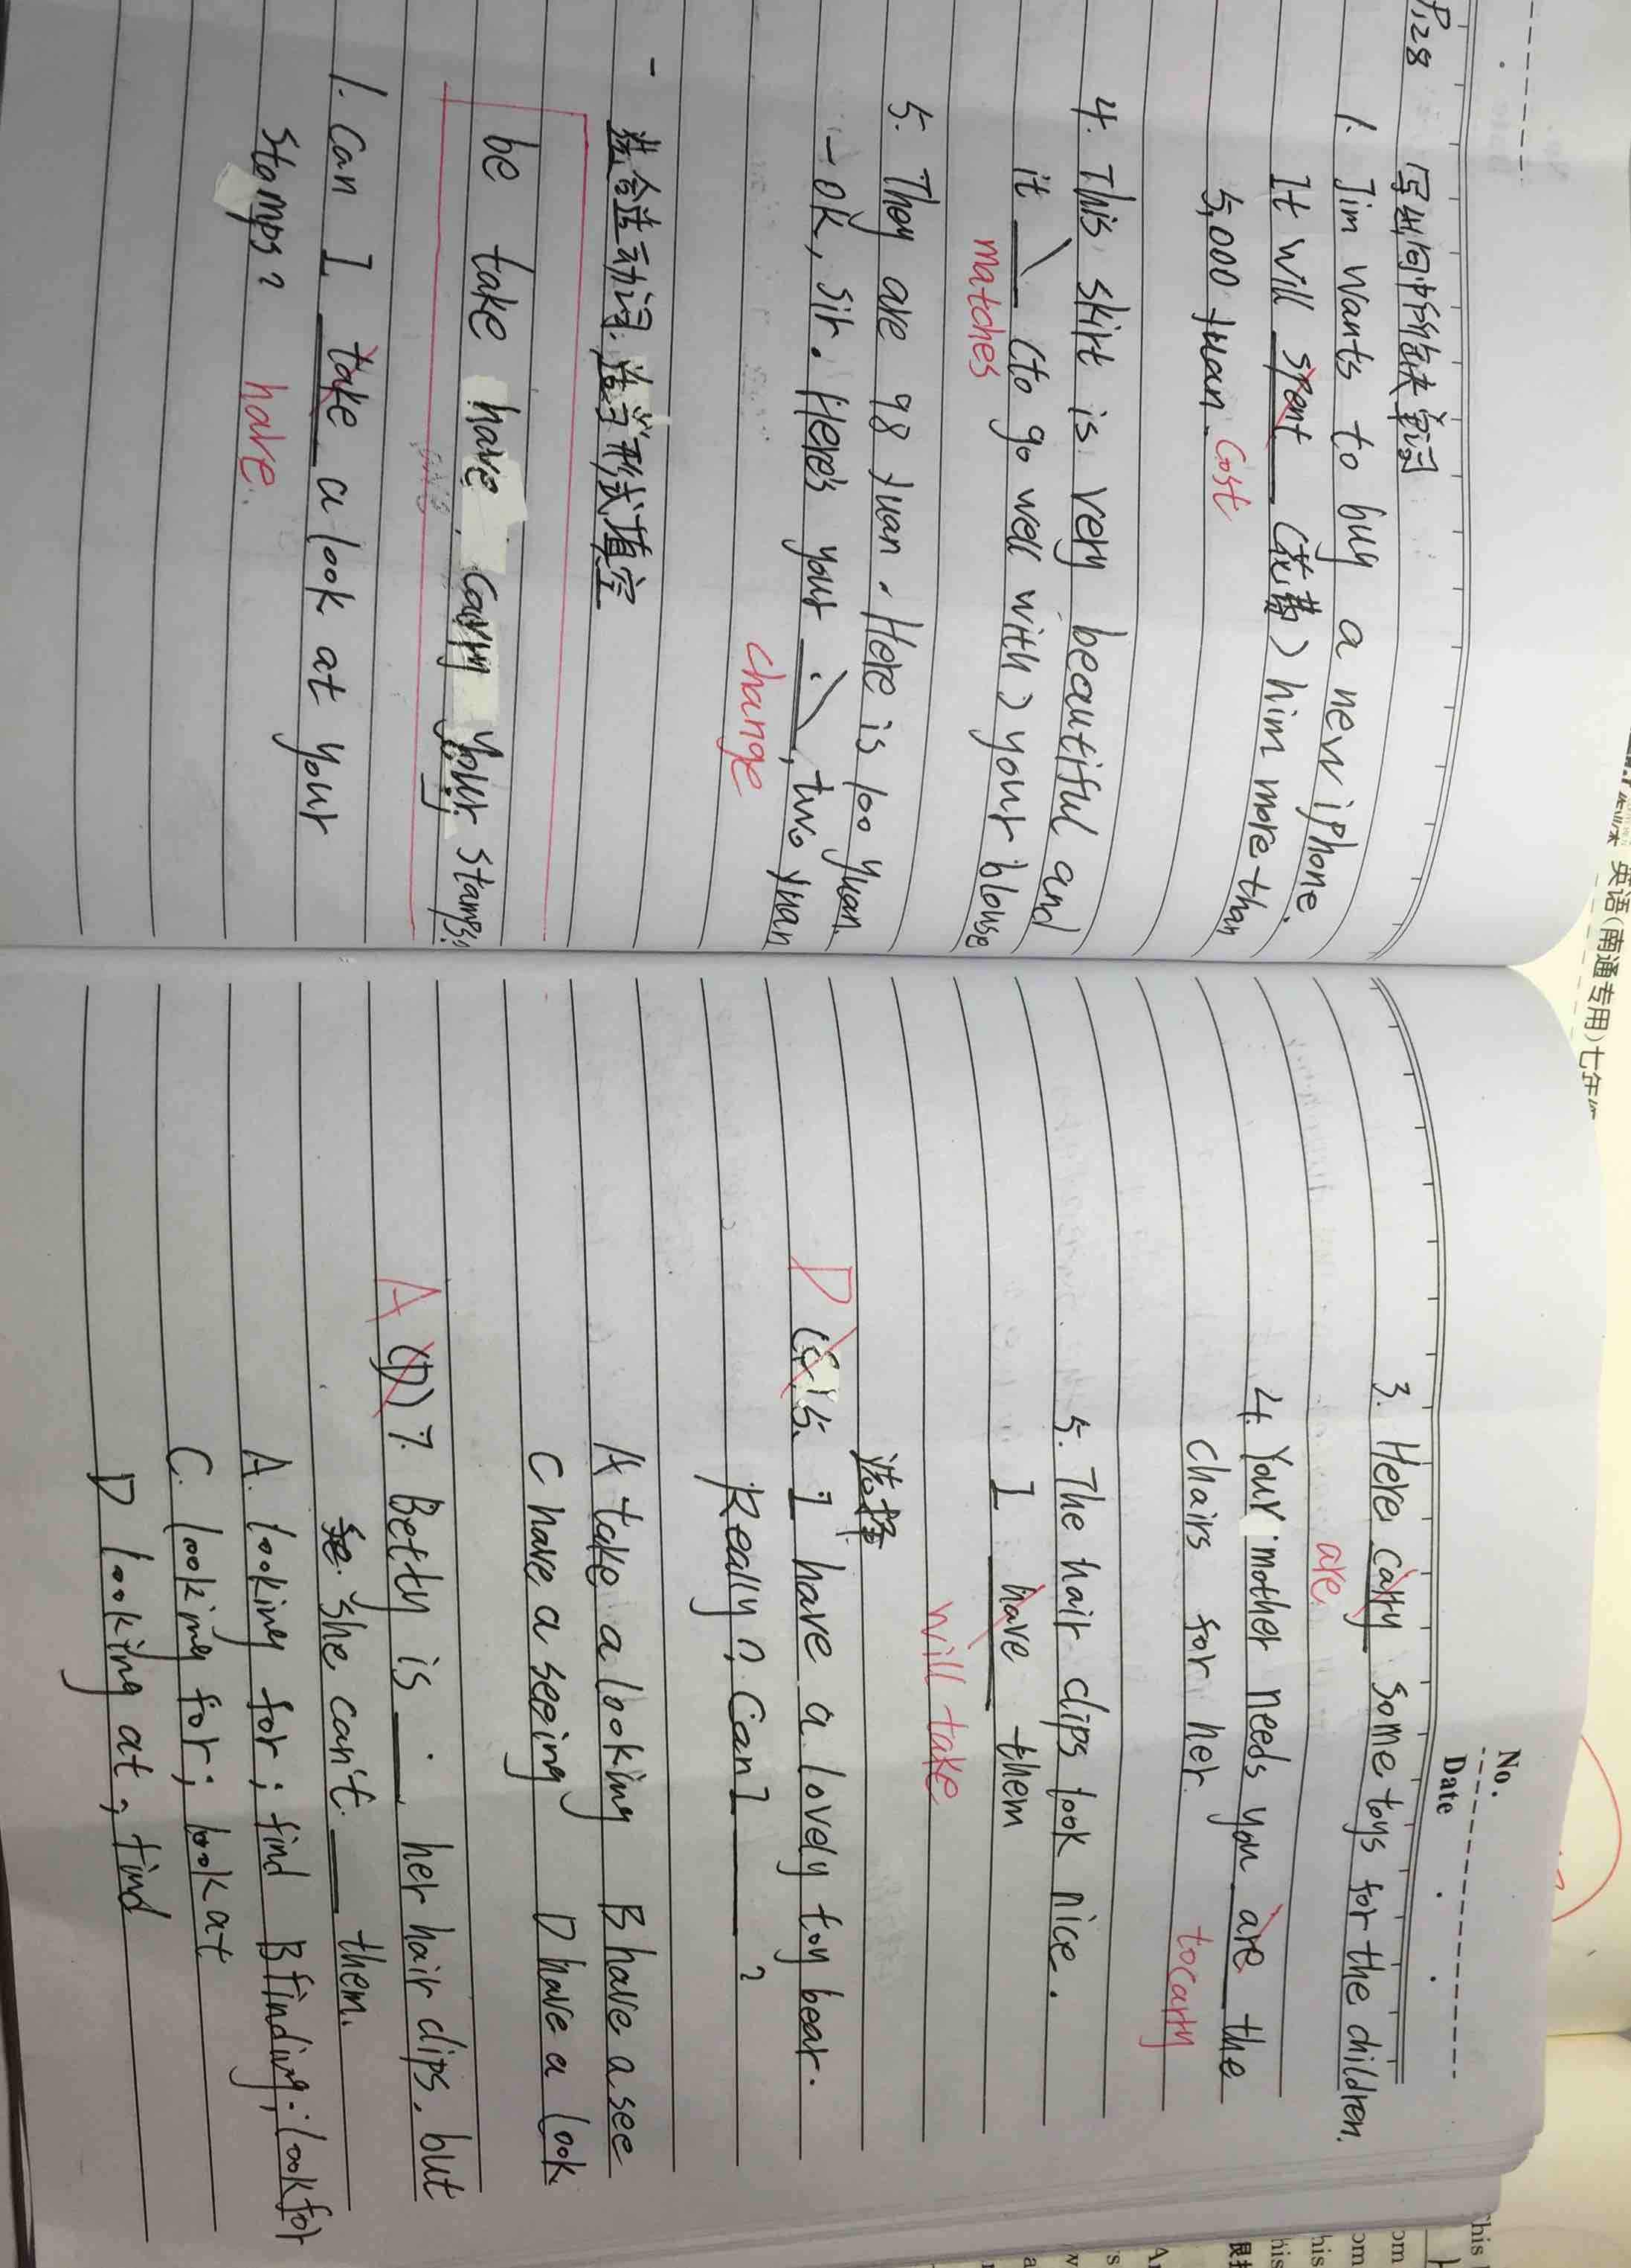 P128 写出句中所缺单词
1. Jim wants to buy a new iPhone.
It will spent (花费) him more than
5,000 yuan. cost
4. This skirt is very beautiful and
it (to go well with) your blouse
matches
5. They are 98 yuan. Here is 100 yuan.
- OK, sir. Here's your , two yuan
change
一 选合适动词, 适当形式填空
be take have carry your stamps
1. Can I take a look at your
stamps? have.
No.
Date
3. Here carry some toys for the children.
are
4. Your mother needs you are the
chairs for her. to carry
5. The hair clips look nice.
I have them
will take
选择
D (C) 5. I have a lovely toy bear.
Really? Can I ?
A take a looking B have a see
C have a seeing D have a look
A (D) 7. Betty is . her hair clips, but
she can't them.
A. looking for; find B finding; look for
C. looking for; look at
D looking at; find
英语(南通专用)七年